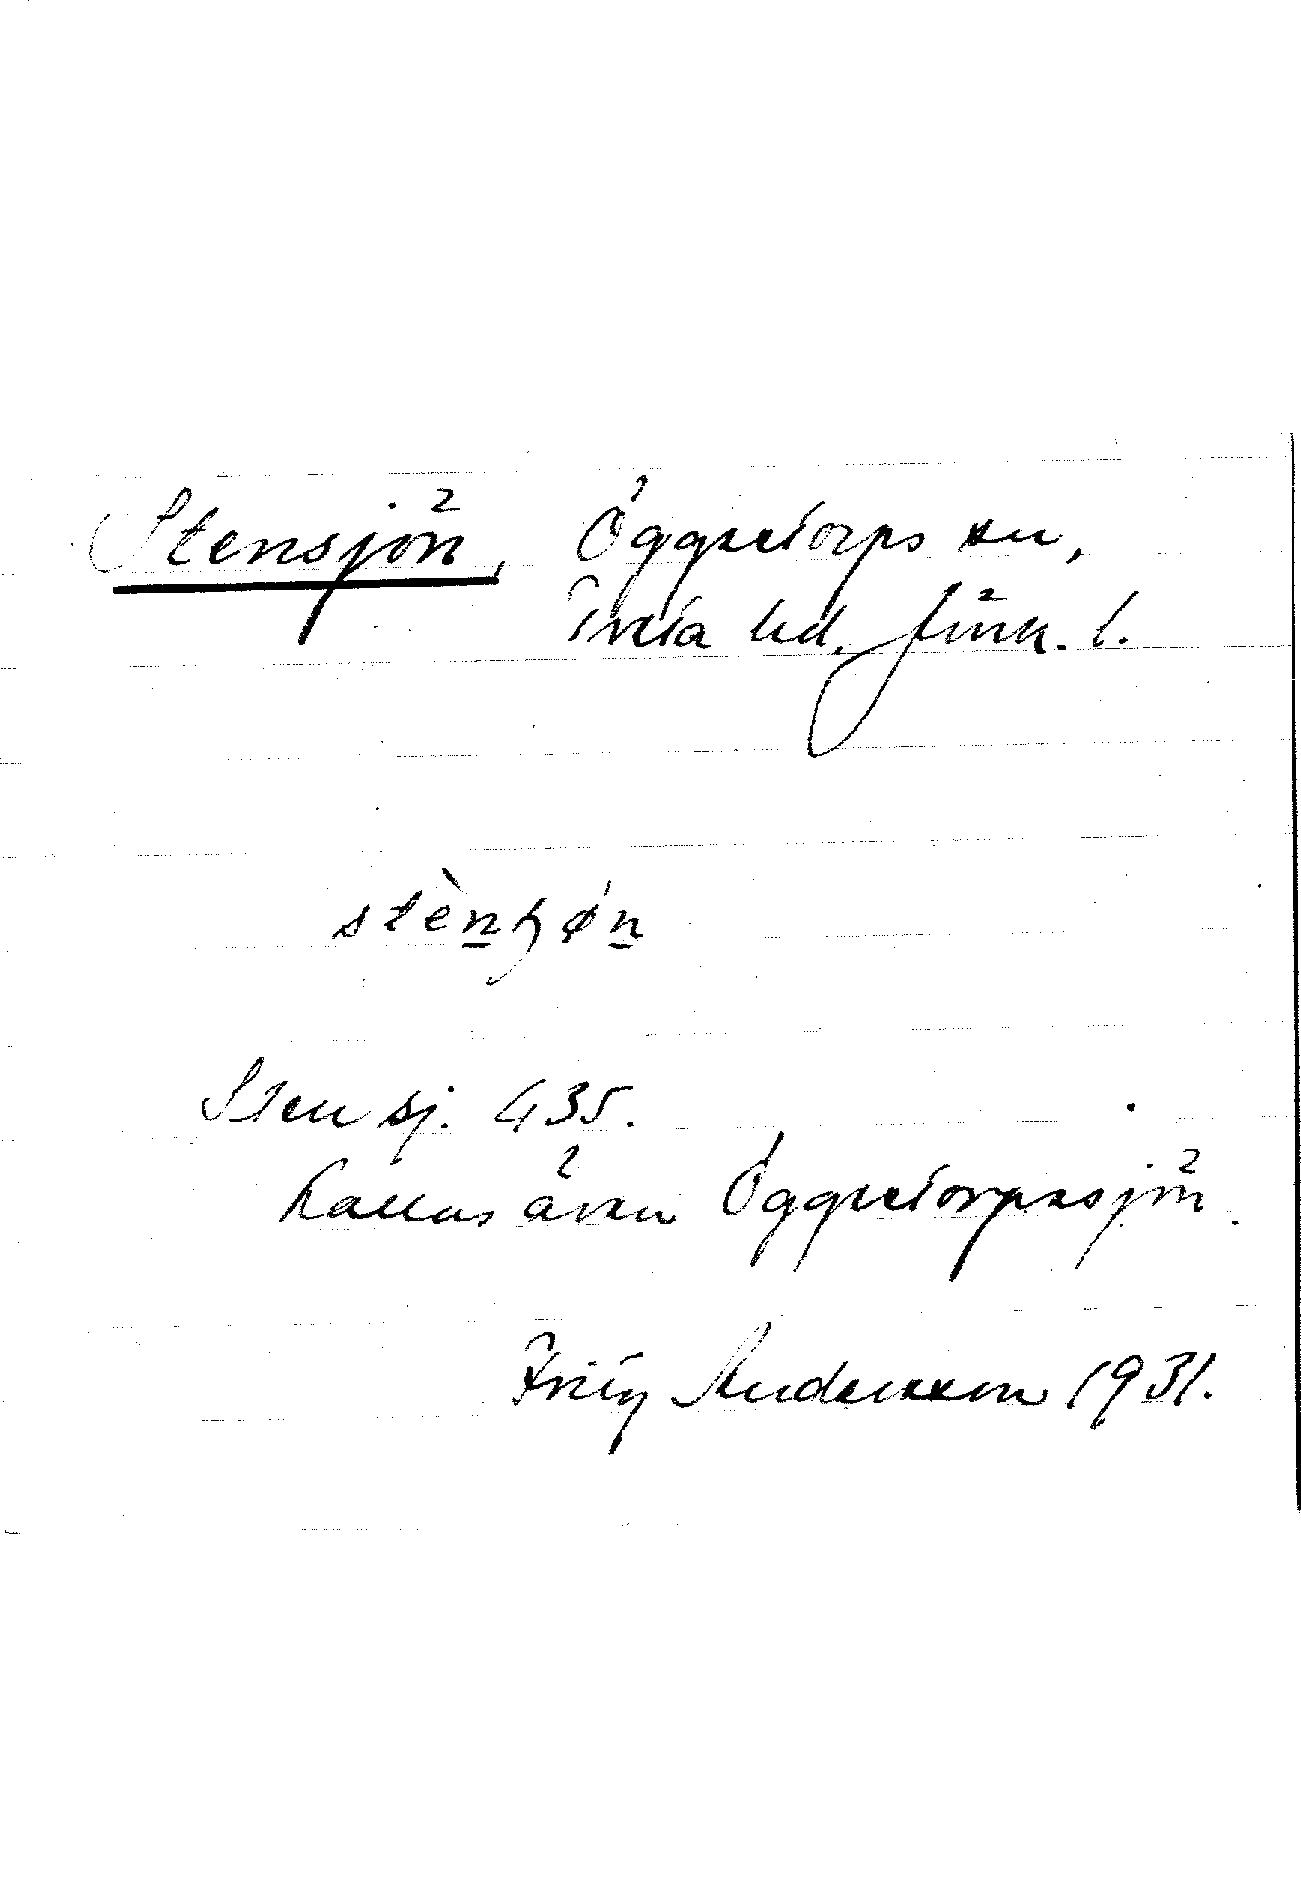 Stensjön, Öggestorps sn,
Tveta hd. Jönk. l.
stènɧǿn
Sten sj. 435.
Kallas även Öggestorpssjön.
Fritz Andersson 1931.